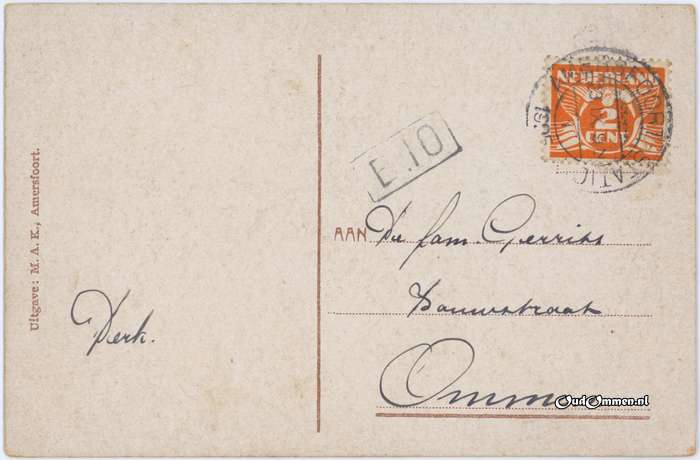 Uitgave: M. A. K., Amersfoort.
Derk.
NEDERLAND
2
CENT
E.10
AAN De fam. Gerrits
Bouwstraat
Ommen
OudOmmen.nl